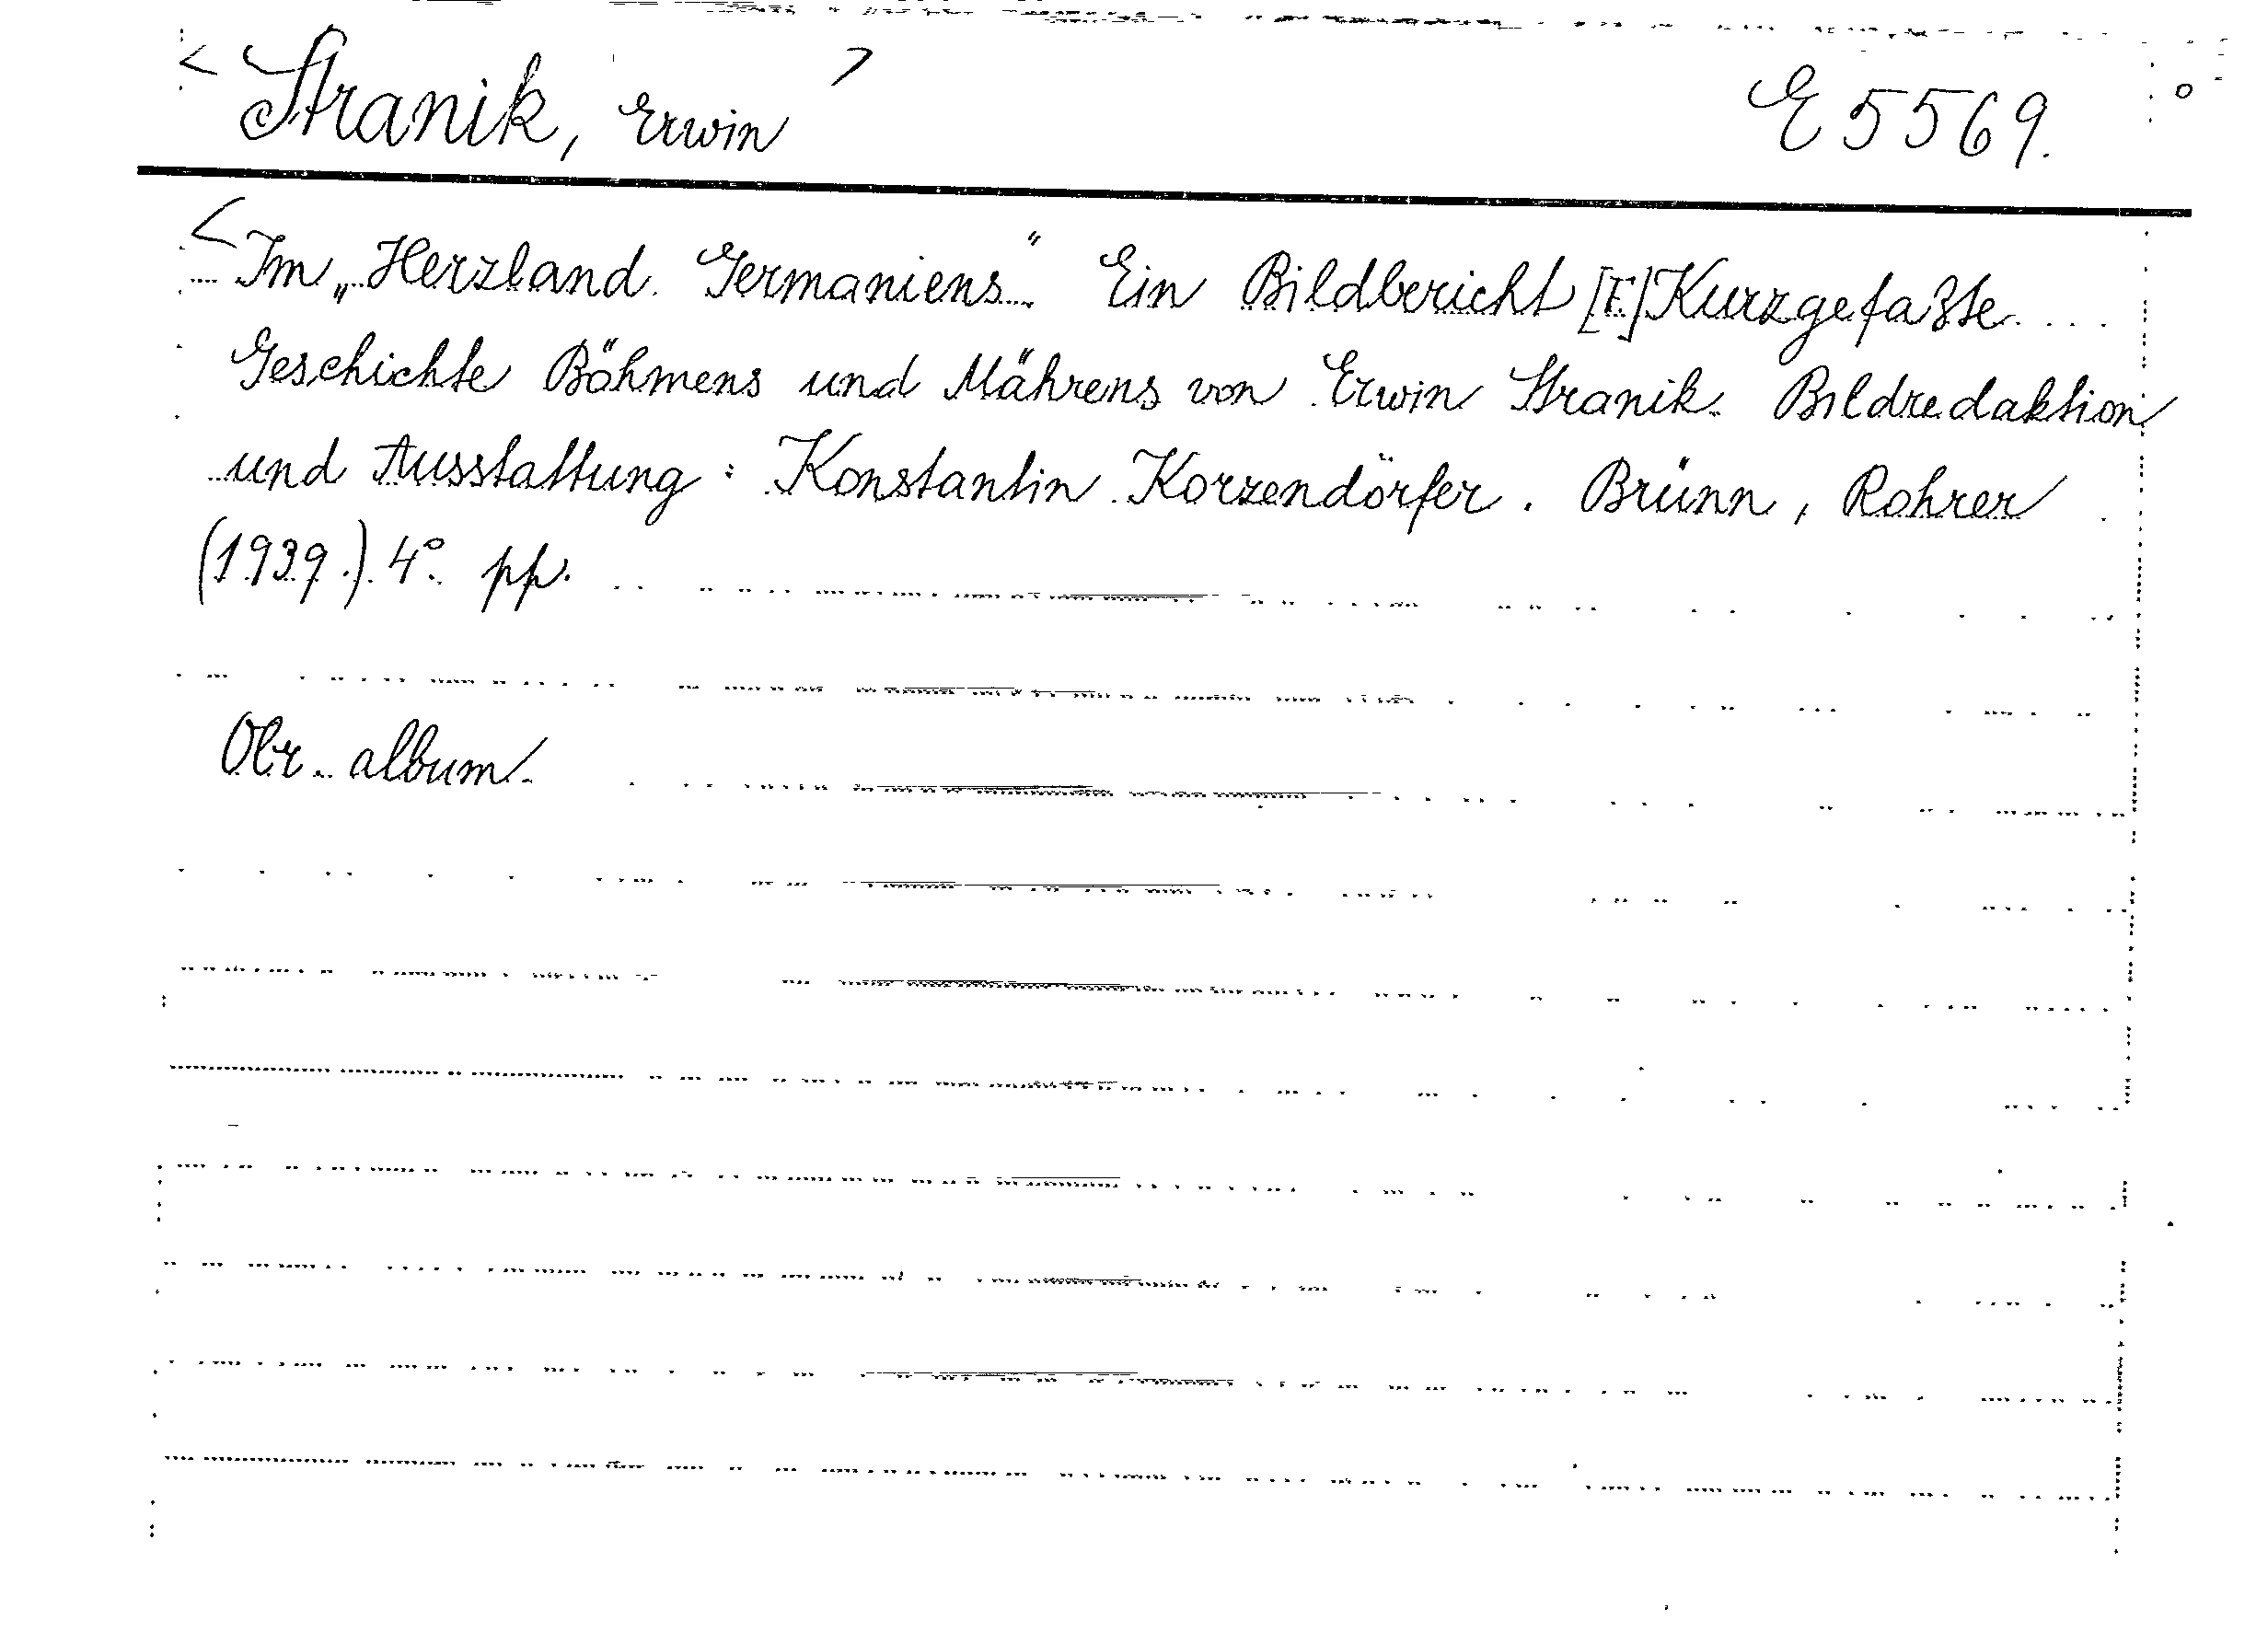 < Stranik, Erwin > E 5569.
< Im „Herzland Germaniens“ Ein Bildbericht [F] Kurzgefaßte
Geschichte Böhmens und Mährens von Erwin Stranik. Bildredaktion
und Ausstattung: Konstantin Korzendörfer. Brünn, Rohrer
(1939.) 4° pp.
Obr. album.